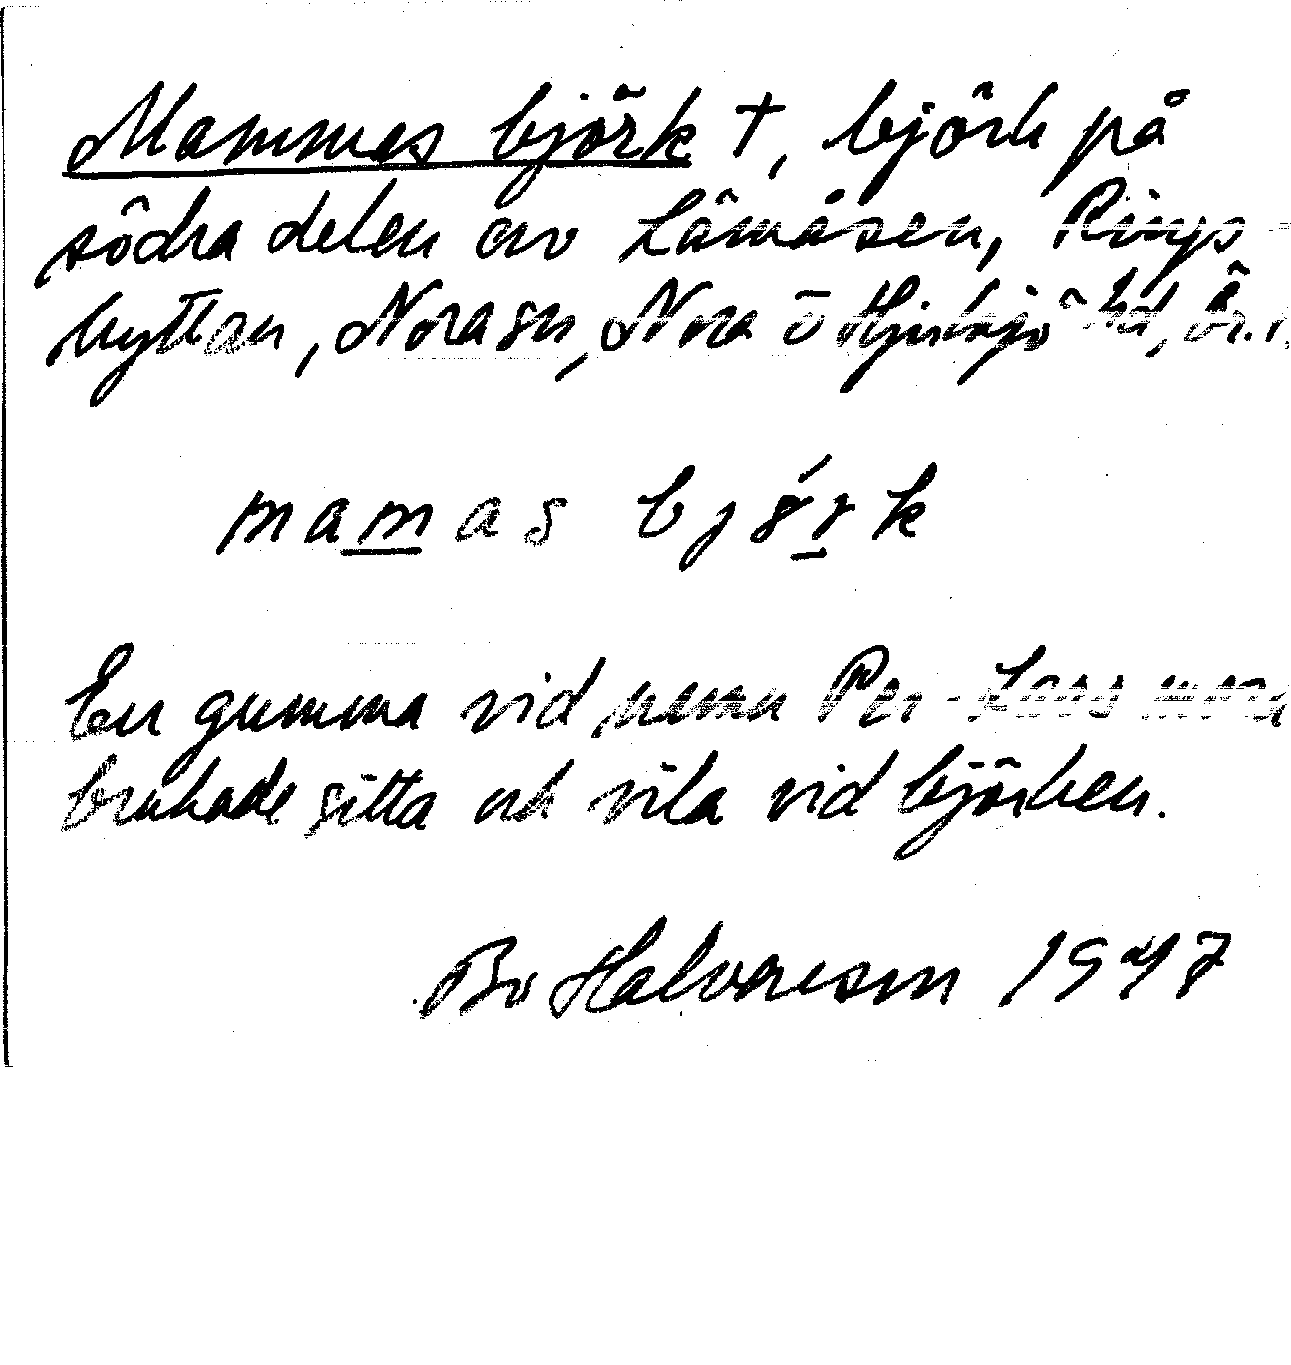 Mammas björk †, björk på
södra delen av Lämåsen, Rings-
hyttan, Nora sn, Nora o Hjulsjö hd, Ör. l.
mamas bjørk
En gumma vid namn Per-Lars mora
brukade sitta och vila vid björken.
Bo Halvarsson 1947